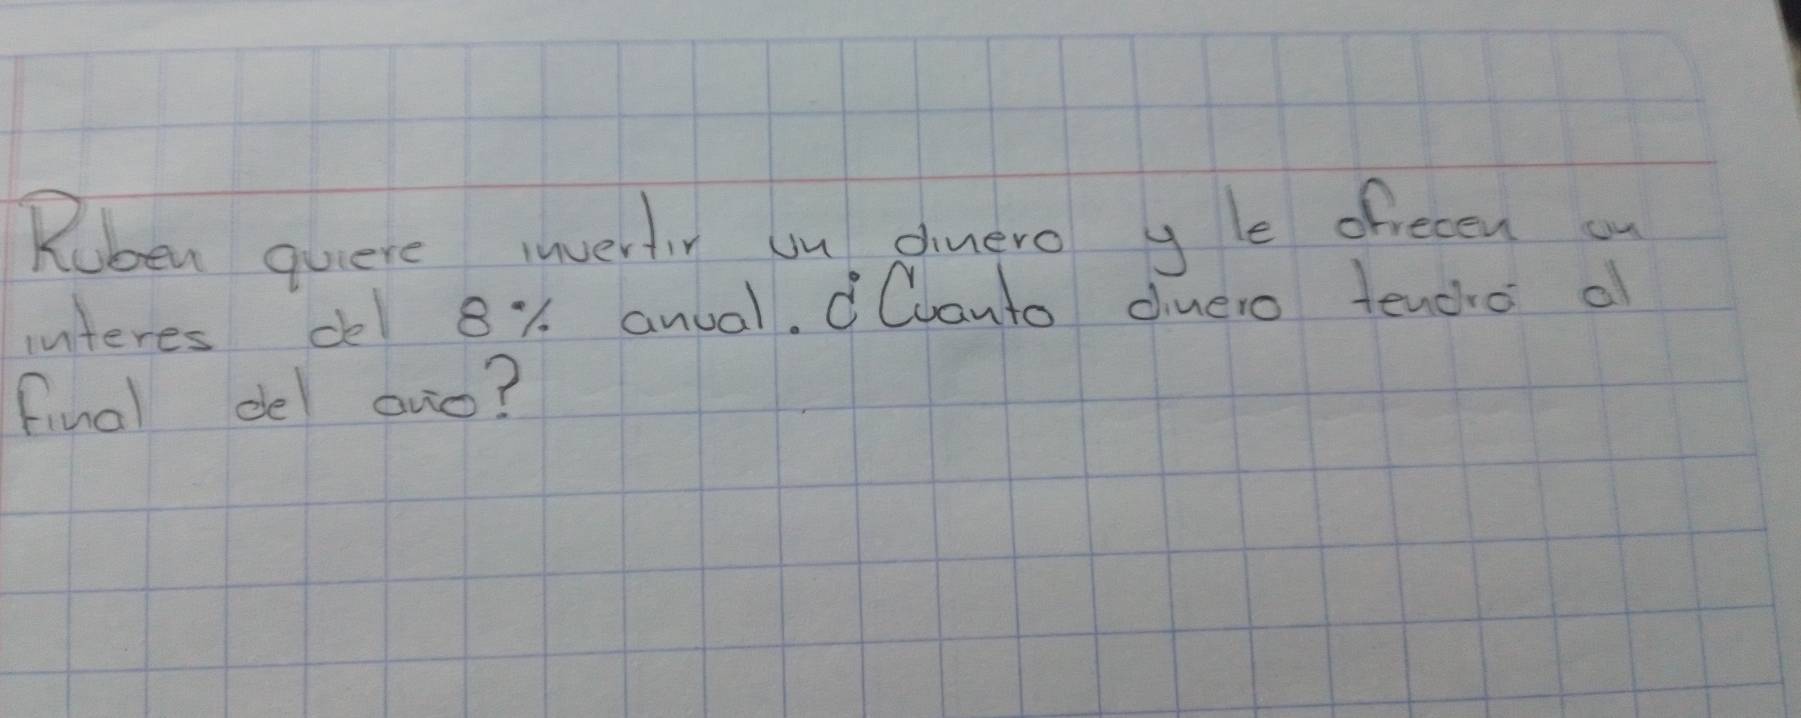 Ruben quiere invertir un dinero y le ofrecen un
interes del 8% anual. ¿Cuanto dinero tendrá al
final del año?